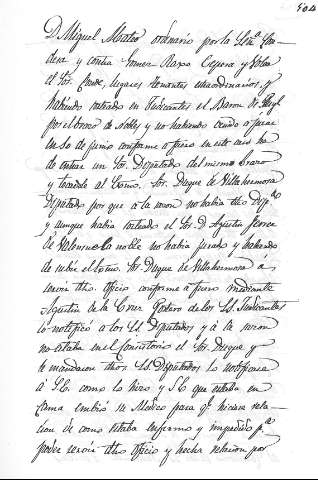 504
D. Miguel Mateo ordinario por la Srª. Con-
desa y contra Jomer Raxo Cegera y Foba
el Sor. Conde, lugares thenientes extraordinarios. y
habiendo entrado en Judicantes el Baron de
por el brazo de Nobles y no habiendo venido a jurar
en 30 de junio conforme a fuero en este caso ha
de entrar un Sor. Diputado del mismo brazo
y tocandole al Exmo. Sor. Duque de Villahermosa
Diputado por que a la sazon no habia otro Dipdo
y aunque habia sorteado el Sor. D. Agustin
de Valenzuela noble no habia jurado y habiendo
de subir el Exmo. Sor. Duque de Villahermosa á
servir dho. oficio conforme a fuero mediante
Agustin de la Cruz Portero de los SS. Judicantes
lo notificó a los SS. Diputados y á la sazon
no estaba en el Consistorio el Sor. Duque y
le mandaron dhos. SS. Diputados lo notificara
á S.E. como lo hizo y S.E. que estaba en
Cama embió su Medico para qe. hiciese rela-
cion de como estaba enfermo e impedido pa.
poder servir dho oficio y hecha relacion por